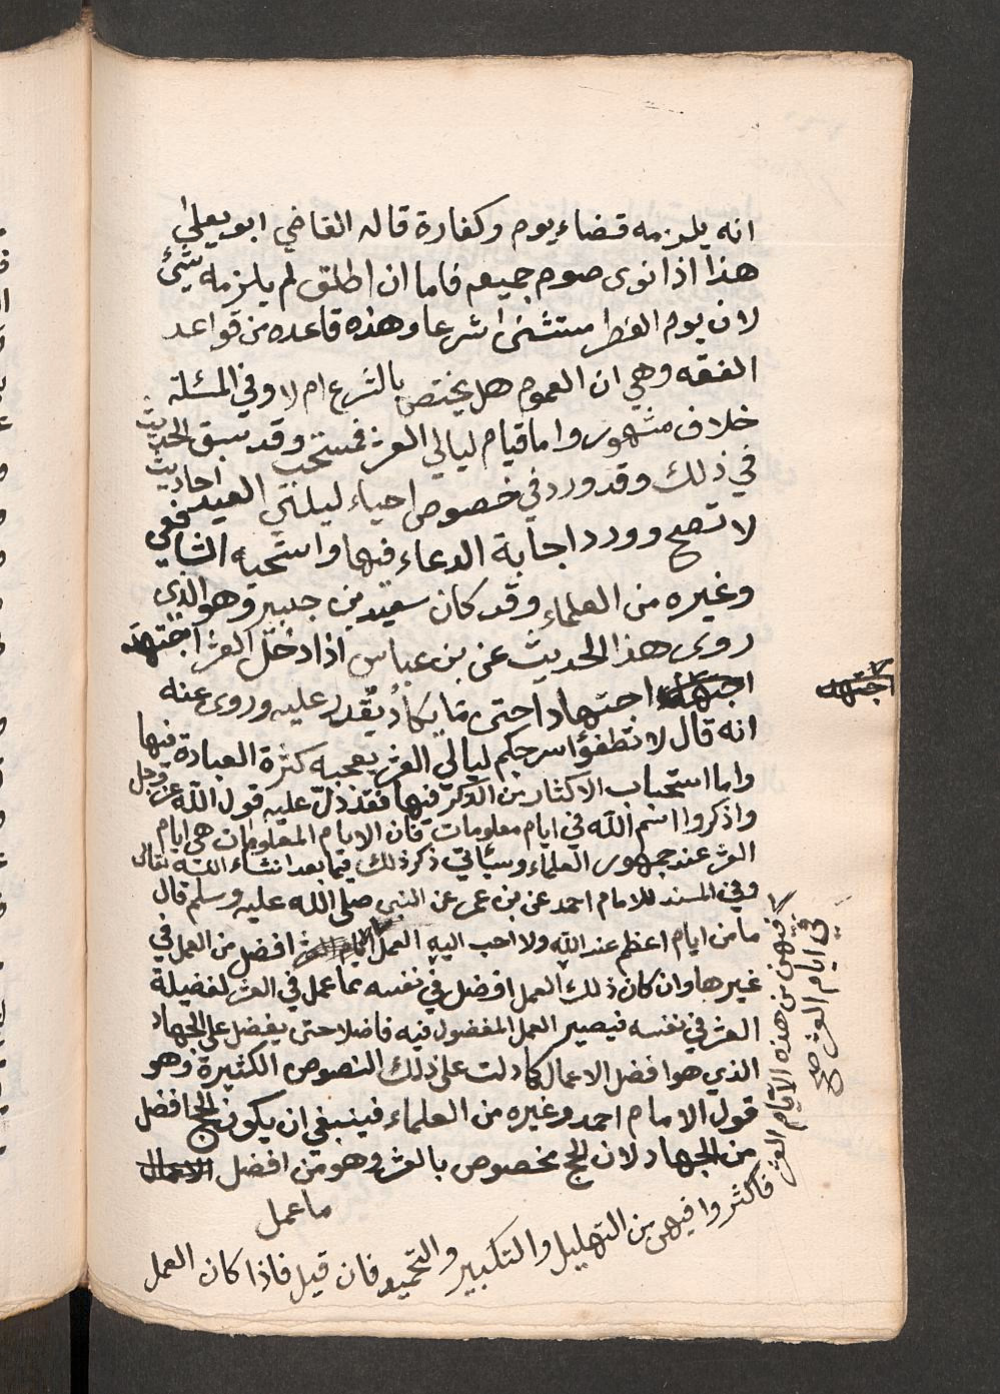 انه يلزمه قضاء يوم وكفارة قاله القاضي ابو يعلى
هذا اذا نوى صوم جميعه فاما ان اطلق لم يلزمه شيئ
لان يوم الفطر مستثنى شرعا وهذه قاعده من قواعد
الفقه وهي ان العموم هل يختص بالشرع ام لا وفي المسئلة
خلاف مشهور واما قيام ليالي العشر فمستحب وقد سبق الحديث
في ذلك وقد ورد في خصوص احياء ليلتي العيد احاديث
لا تصح وورد اجابة الدعاء فيها واستحبه الشافعي
وغيره من العلماء وقد كان سعيد بن جبير وهو الذي
روى هذا الحديث عن بن عباس اذا دخل العشر اجتهد
اجتهد اجتهادا حتى ما يكاد يقدر عليه وروى عنه
اجتهد
انه قال لا تطفؤا سرجكم ليالي العشر يعجبه كثرة العبادة فيها
واما استحباب الاكثار من الذكر فيها فقد دل عليه قول الله عز وجل
واذكروا اسم الله في ايام معلومات فان الايام المعلومات هي ايام
العشر عند جمهور العلماء وسيأتي ذكر ذلك فيما بعد انشاء الله تعالى
وفي المسند للامام احمد عن بن عمر عن النبي صلى الله عليه وسلم قال
ما من ايام اعظم عند الله ولا احب اليه العمل افضل من العمل في
غيرها وان كان ذلك العمل افضل في نفسه مما عمل في العشر لفضيلة
العشر في نفسه فيصير العمل المفضول فيه فاضلا حتى يفضل على الجهاد
الذي هو افضل الاعمال كما دلت على ذلك النصوص الكثيرة وهو
قول الامام احمد وغيره من العلماء فينبغي ان يكون الحج افضل
من الجهاد لان الحج مخصوص بالعشر وهو من افضل الاعمال
ما عمل
فيهن من هذه الايام العشر
فاكثروا فيهن من التهليل والتكبير والتحميد فان قيل فاذا كان العمل
في ايام العشر صح